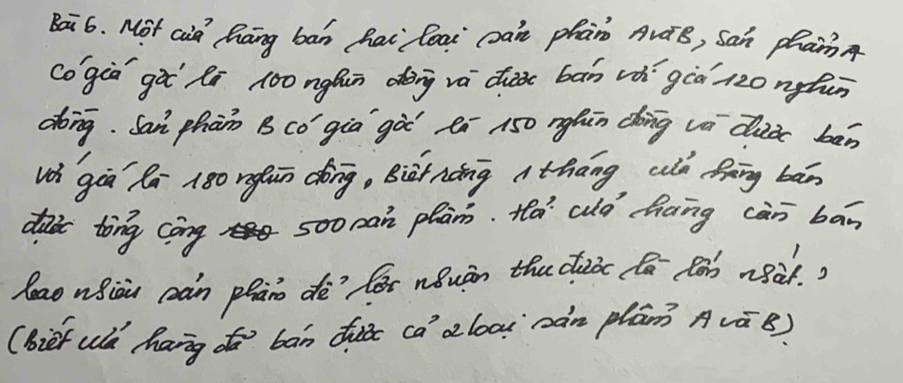 Bài 6. Một cửa hàng bán hai loại sản phẩm A và B, sản phẩm A
có giá gốc là 100 nghìn đồng và được bán với giá 120 nghìn
đồng. Sản phẩm B có giá gốc là 150 nghìn đồng và được bán
với giá là 180 nghìn đồng, Biết rằng 1 tháng cửa hàng bán
được tổng cộng 500 sản phẩm. Hỏi cửa hàng cần bán
bao nhiêu sản phẩm để lợi nhuận thu được là lớn nhất?
(Biết cửa hàng đã bán được cả 2 loại sản phẩm A và B)